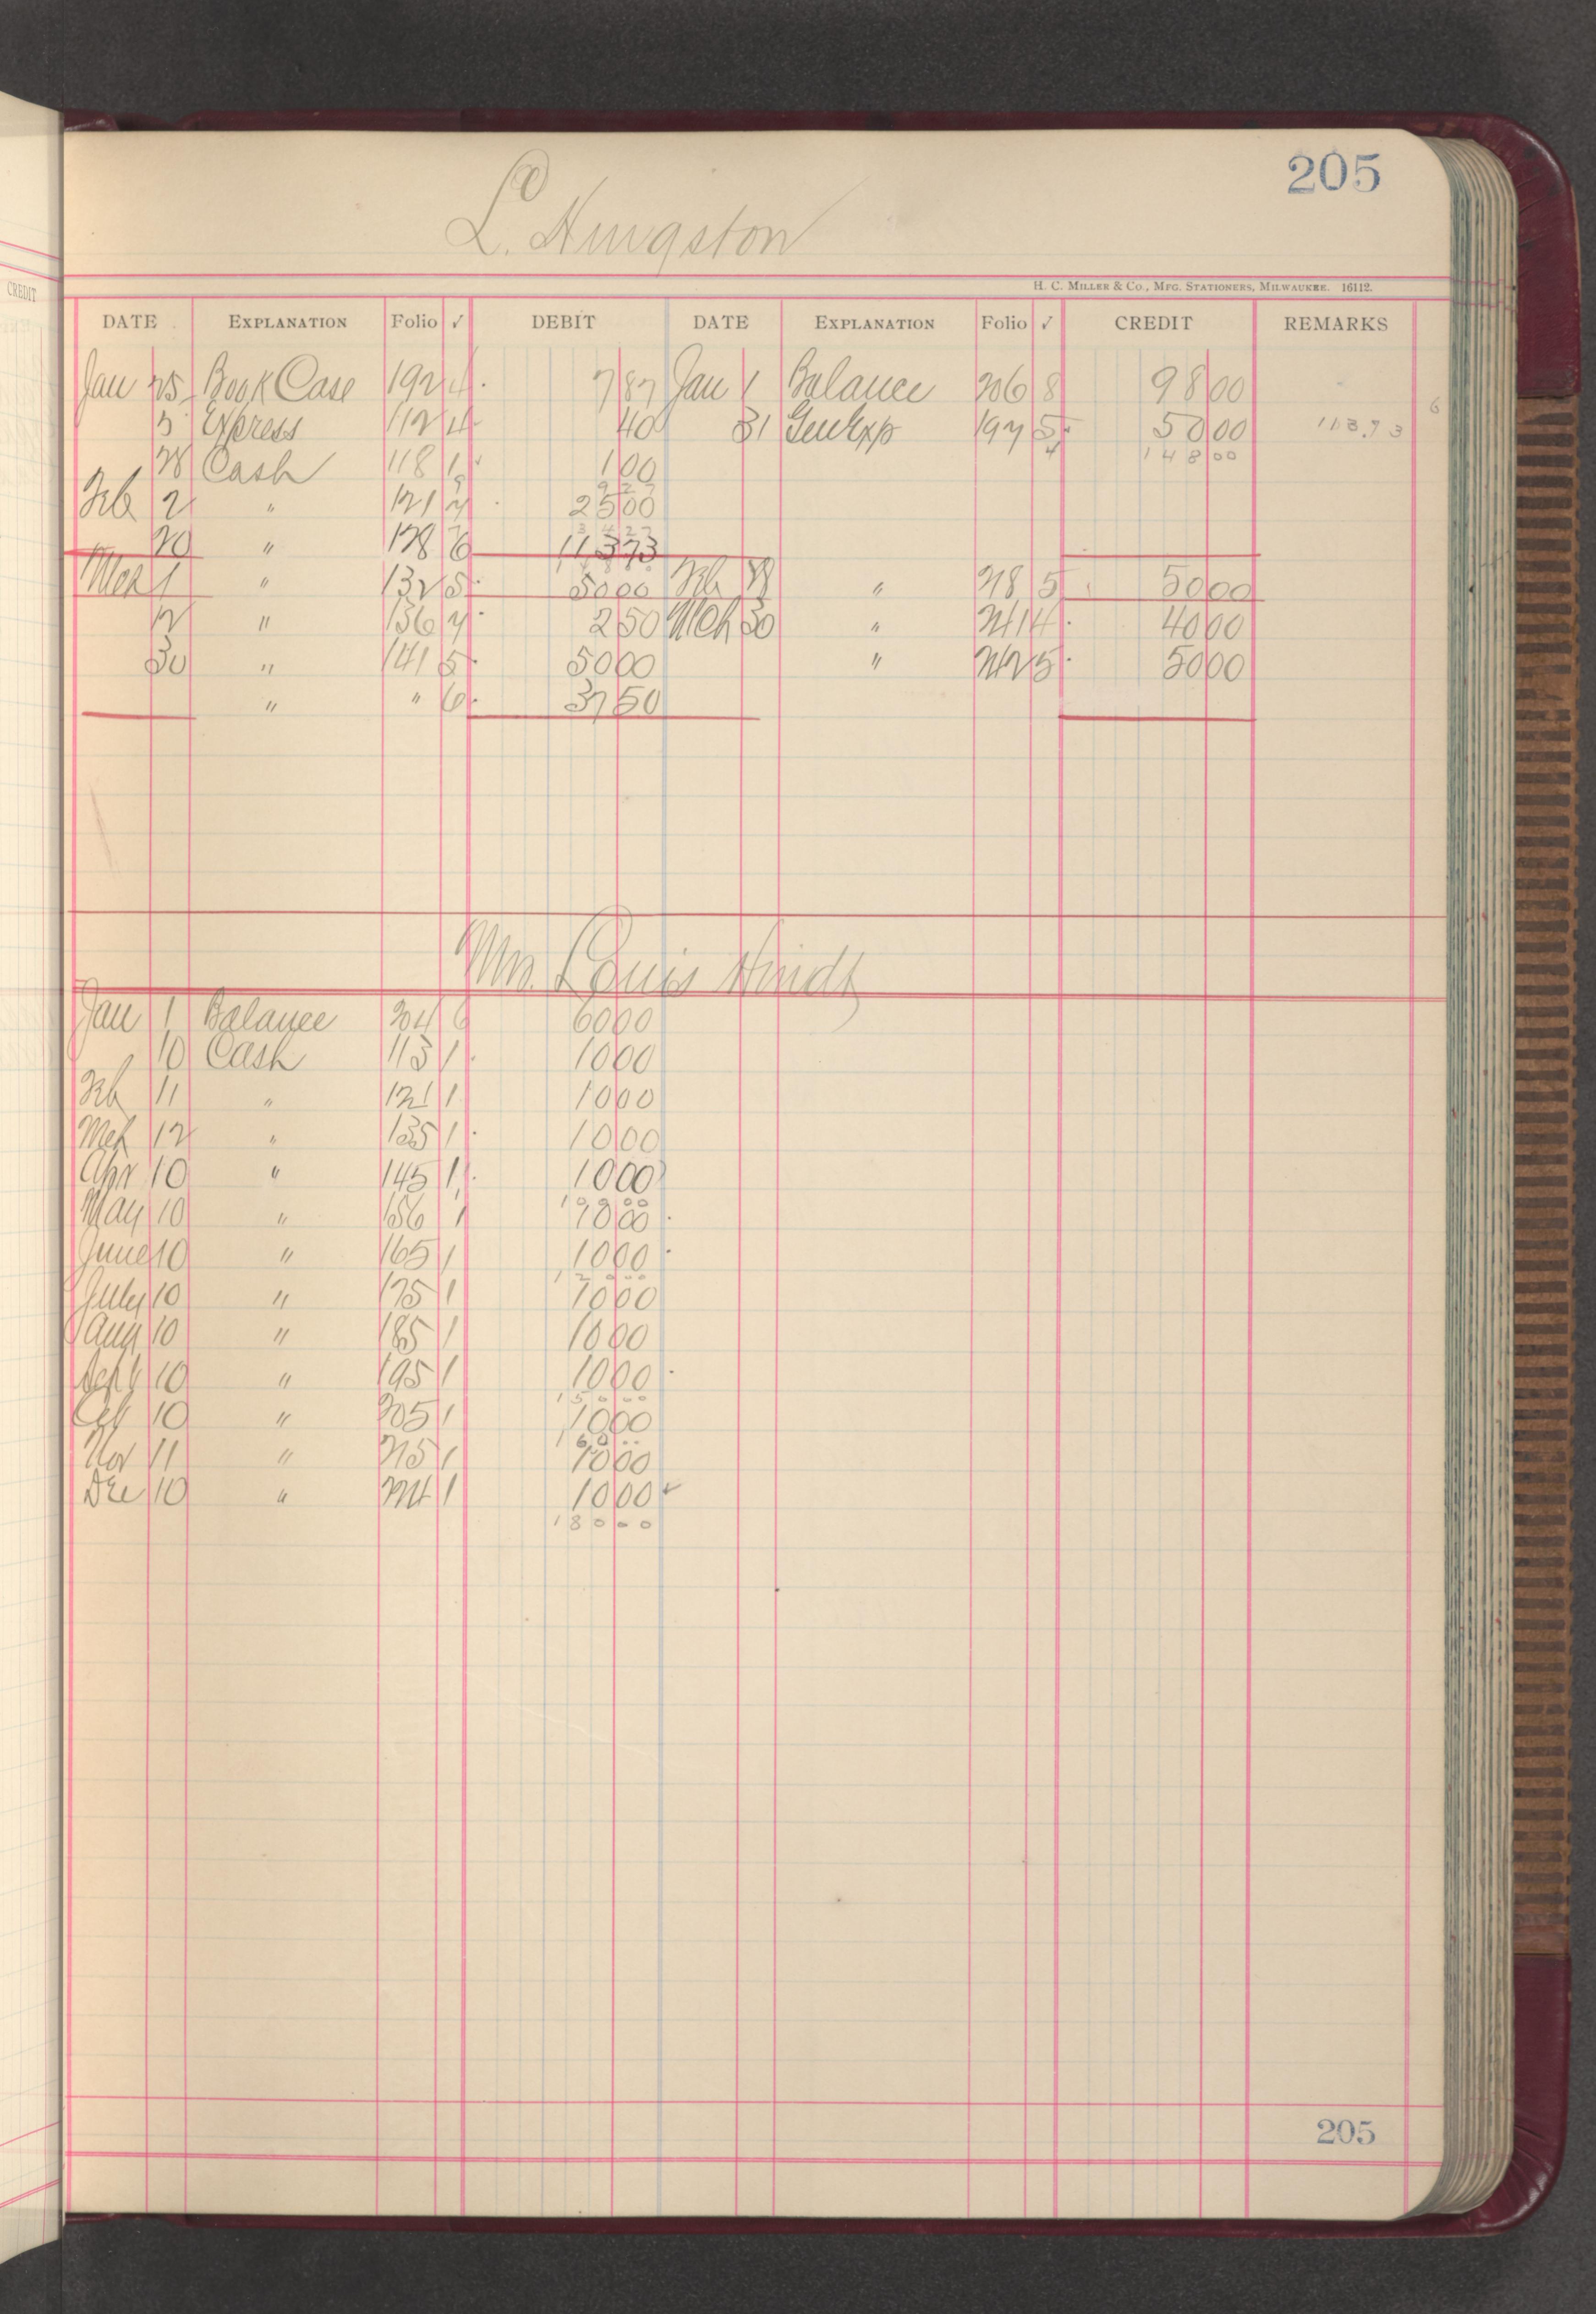 205
L. Hingston
CREDIT
H. C. MILLER & CO., MFG. STATIONERS, MILWAUKEE. 16112.
DATE EXPLANATION Folio ✓ DEBIT DATE EXPLANATION Folio ✓ CREDIT REMARKS
Jan 25 Book Case 192 4 7 87 Jan 1 Balance 206 8 98 00
3 Express 112 4 40 31 Gen Exp 197 5 50 00 113.73 6
28 Cash 118 1 00 148 00
9 27
Feb 2 " 121 7 25 00
34 27
20 " 128 6 113 73
Mch 1 " 132 5 50 00 Feb 28 " 218 5 50 00
12 " 136 7 2 50 Mch 30 " 241 4 40 00
30 " 141 5 50 00 " 242 5 50 00
" " 6 37 50
Mrs. Louis Hinds
Jan 1 Balance 204 6 60 00
10 Cash 113 1 10 00
Feb 11 " 121 1 10 00
Mch 12 " 135 1 10 00
Apr 10 " 145 1 10 00
100 00
May 10 " 156 1 10 00
June 10 " 165 1 10 00
120 00
July 10 " 175 1 10 00
Aug 10 " 185 1 10 00
Sept 10 " 195 1 10 00
150 00
Oct 10 " 205 1 10 00
160 00
Nov 11 " 215 1 10 00
Dec 10 " 224 1 10 00 ✓
180 00
205